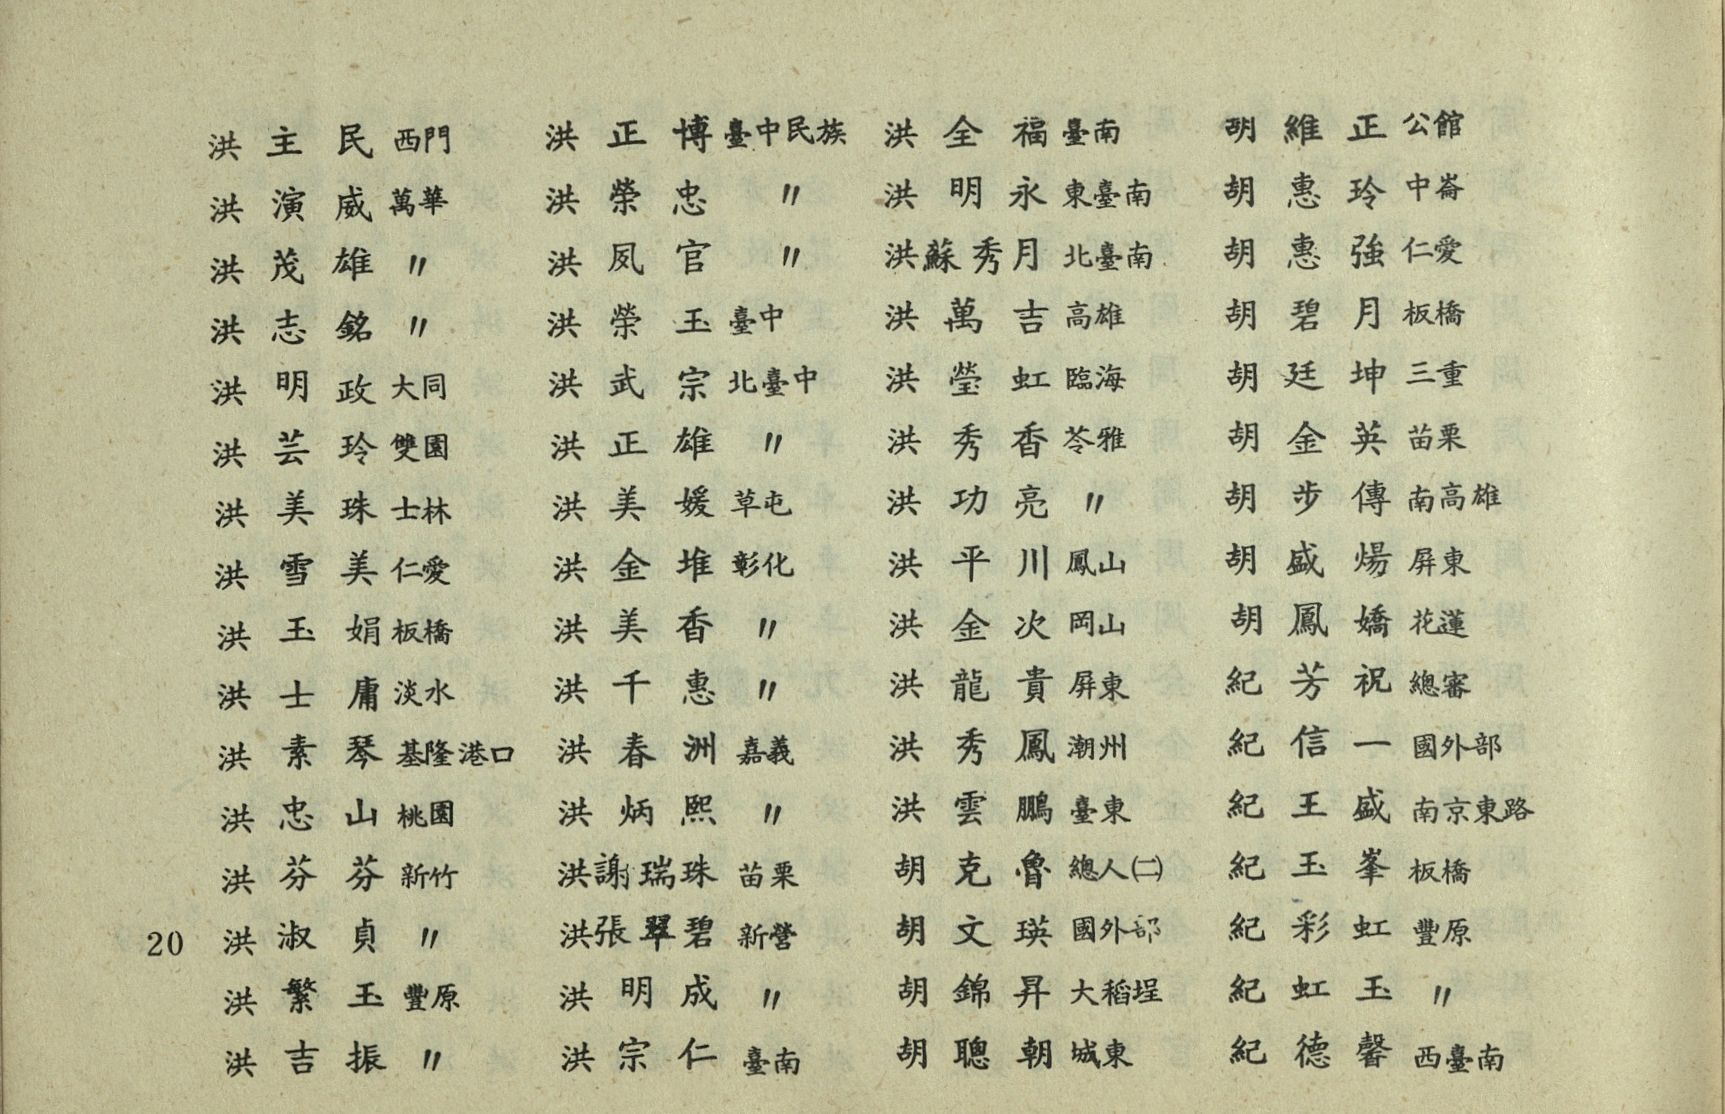 洪主民 西門
洪演威 萬華
洪茂雄 〃
洪志銘 〃
洪明政 大同
洪芸玲 雙園
洪美珠 士林
洪雪美 仁愛
洪玉娟 板橋
洪士庸 淡水
洪素琴 基隆港口
洪忠山 桃園
洪芬芬 新竹
洪淑貞 〃
洪繁玉 豐原
洪吉振 〃
洪正博 臺中民族
洪榮忠 〃
洪凤官 〃
洪榮玉 臺中
洪武宗 北臺中
洪正雄 〃
洪美媛 草屯
洪金堆 彰化
洪美香 〃
洪千惠 〃
洪春洲 嘉義
洪炳熙 〃
洪謝瑞珠 苗栗
洪張翠碧 新營
洪明成 〃
洪宗仁 臺南
洪全福 臺南
洪明永 東臺南
洪蘇秀月 北臺南
洪萬吉 高雄
洪瑩虹 臨海
洪秀香 苓雅
洪功亮 〃
洪平川 鳳山
洪金次 岡山
洪龍貴 屏東
洪秀鳳 潮州
洪雲鵬 臺東
胡克魯 總人㈡
胡文瑛 國外部
胡錦昇 大稻埕
胡聰朝 城東
胡維正 公館
胡惠玲 中崙
胡惠強 仁愛
胡碧月 板橋
胡廷坤 三重
胡金英 苗栗
胡步傳 南高雄
胡盛煬 屏東
胡鳳嬌 花蓮
紀芳祝 總審
紀信一 國外部
紀王盛 南京東路
紀玉峯 板橋
紀彩虹 豐原
紀虹玉 〃
紀德馨 西臺南
20